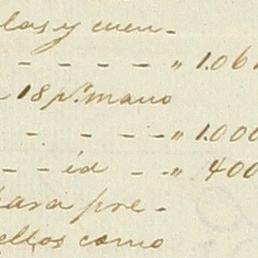 las y cuen-
- - - - " 1.06
18 p.r mano
- - - - " 1.000
- - id - - " 400
para pre-
ellos como